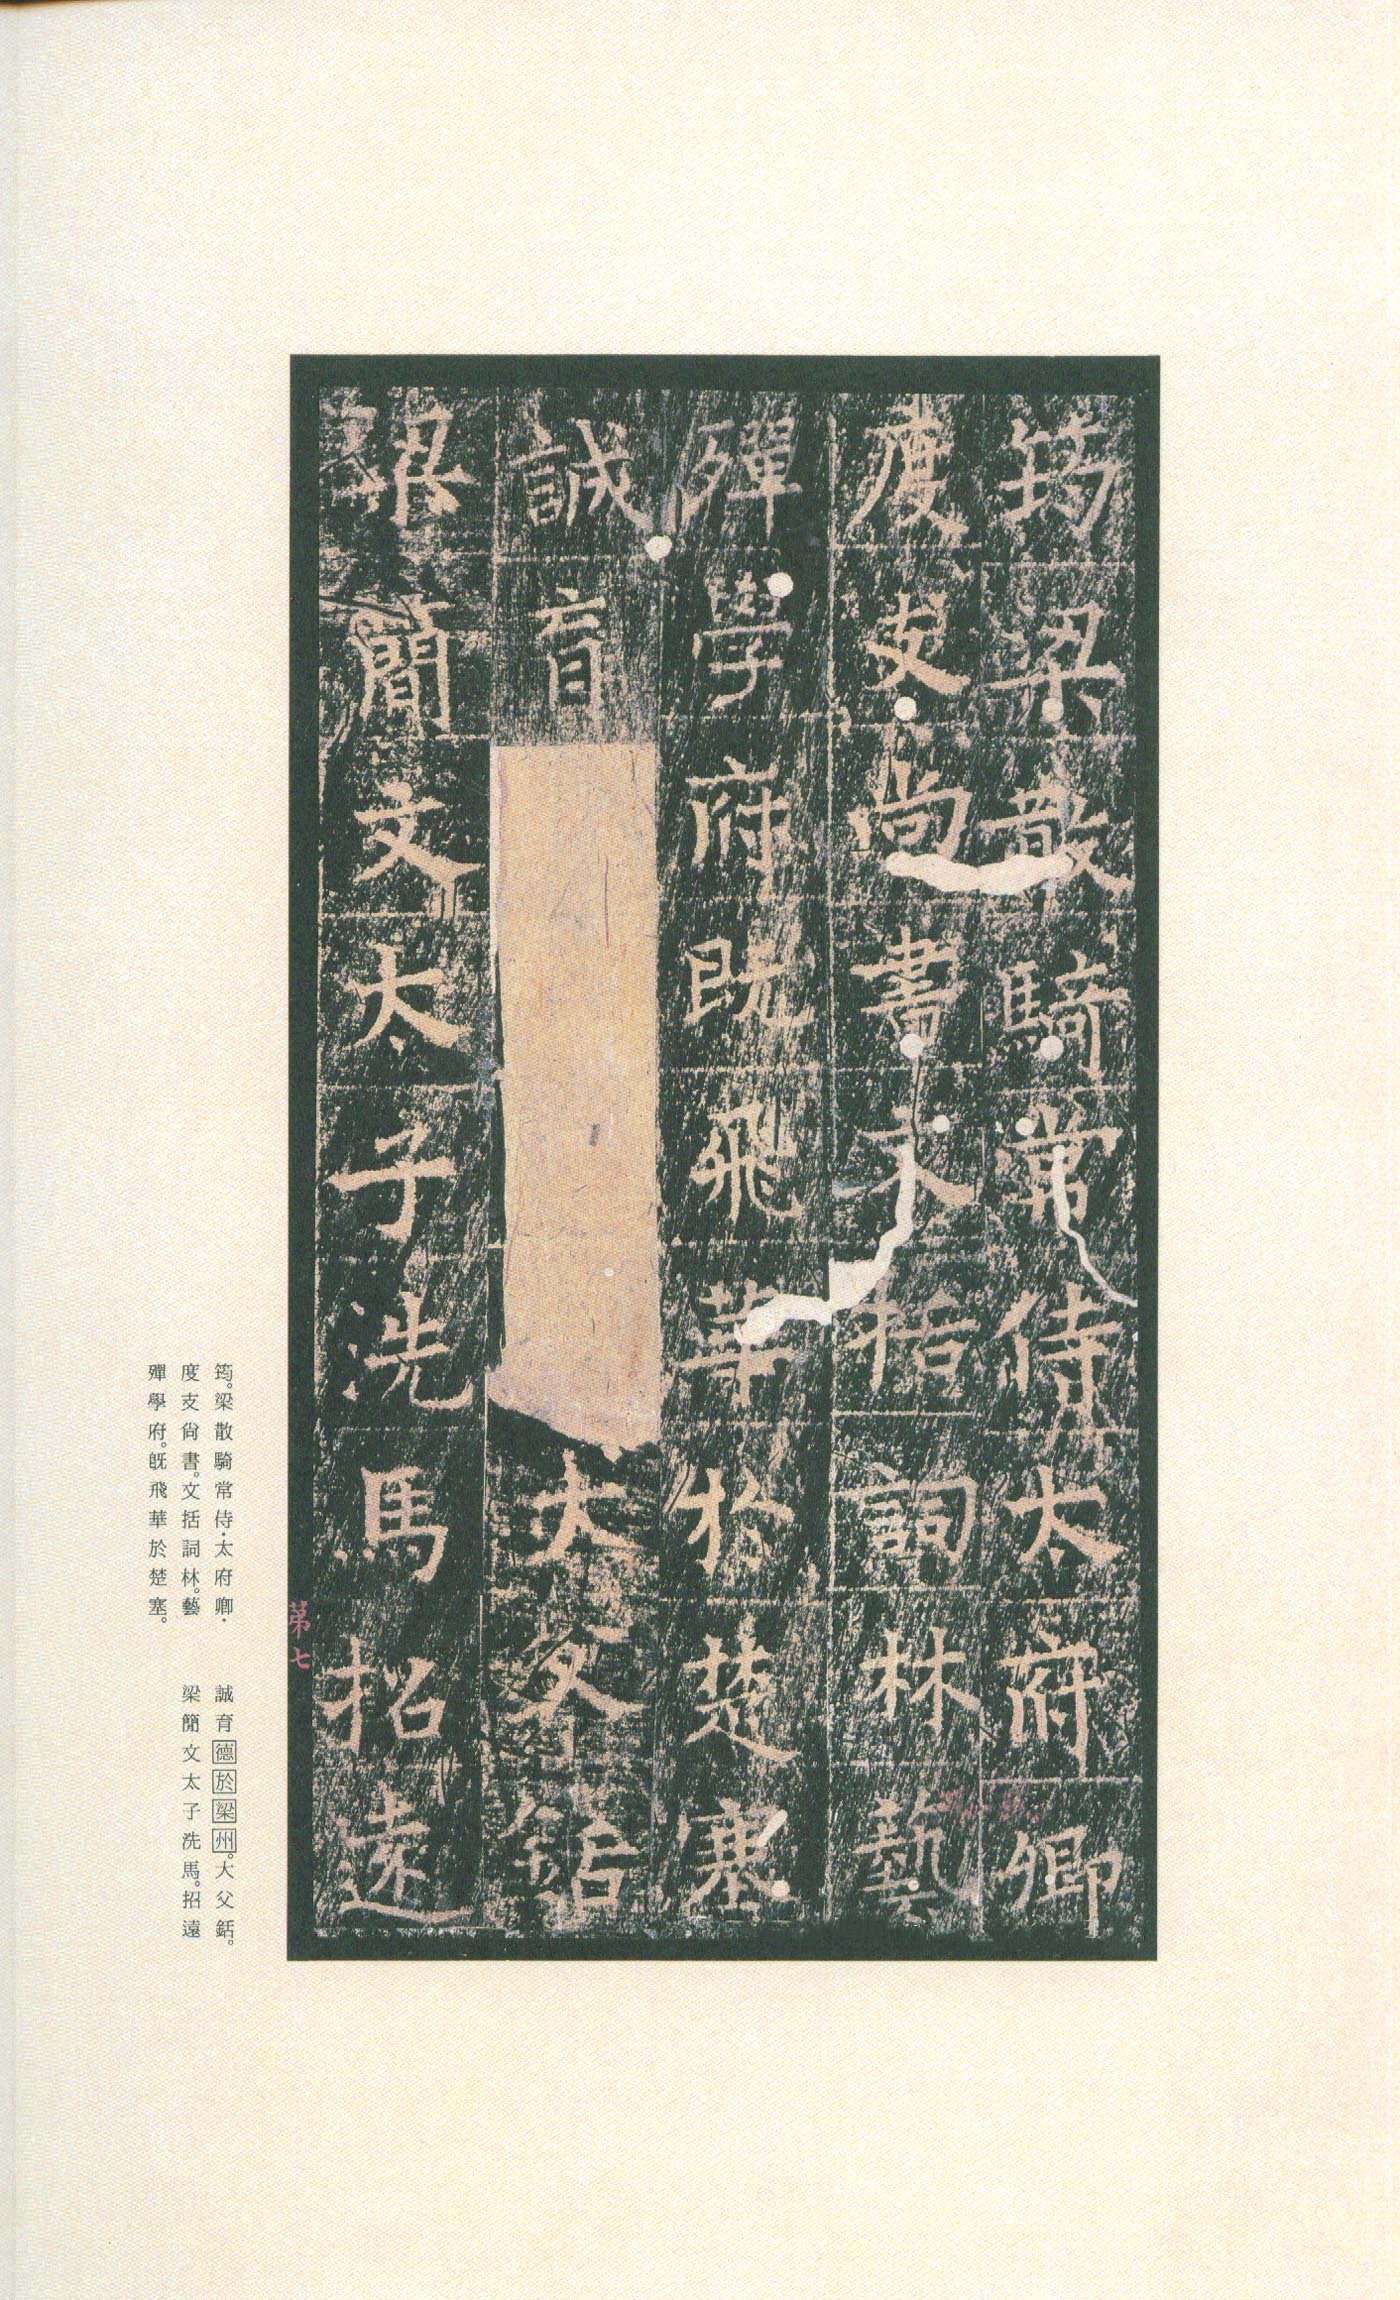 筠梁散騎常侍太府卿
度支尚書文括詞林藝
殫學府既飛華於楚塞
誠育大父銛
梁簡文太子洗馬招遠
第七
筠。梁散騎常侍·太府卿·
度支尙書。文括詞林。藝
殫學府。旣飛華於楚塞。
誠育德於梁州。大父銛。
梁簡文太子洗馬。招遠